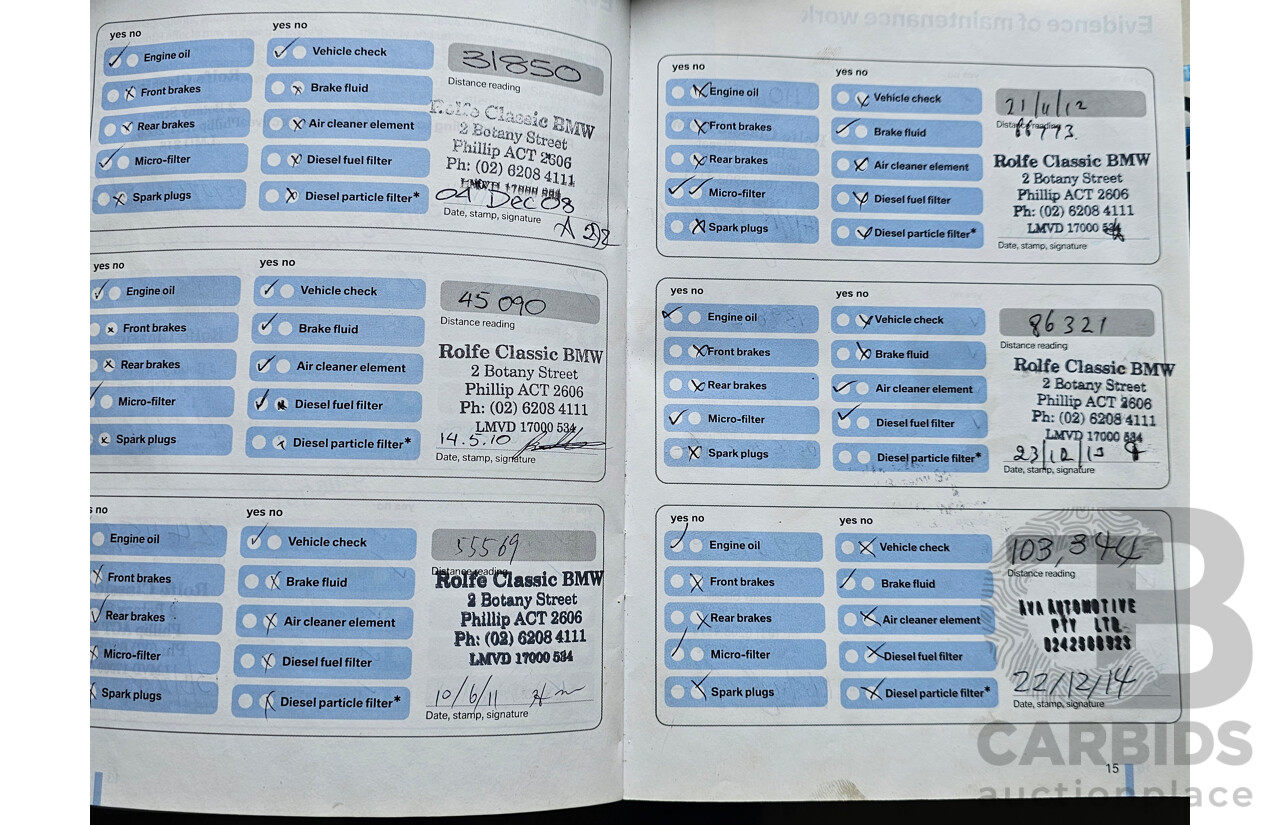 yes no
Engine oil
Front brakes
Rear brakes
Micro-filter
Spark plugs
yes no
Vehicle check
Brake fluid
Air cleaner element
Diesel fuel filter
Diesel particle filter*
31850
Distance reading
Rolfe Classic BMW
2 Botany Street
Phillip ACT 2606
Ph: (02) 6208 4111
LMVD 17000 534
04 Dec 08
Date, stamp, signature
yes no
Engine oil
Front brakes
Rear brakes
Micro-filter
Spark plugs
yes no
Vehicle check
Brake fluid
Air cleaner element
Diesel fuel filter
Diesel particle filter*
45 090
Distance reading
Rolfe Classic BMW
2 Botany Street
Phillip ACT 2606
Ph: (02) 6208 4111
LMVD 17000 534
14.5.10
Date, stamp, signature
s no
Engine oil
Front brakes
Rear brakes
Micro-filter
Spark plugs
yes no
Vehicle check
Brake fluid
Air cleaner element
Diesel fuel filter
Diesel particle filter*
55569
Distance reading
Rolfe Classic BMW
2 Botany Street
Phillip ACT 2606
Ph: (02) 6208 4111
LMVD 17000 534
10/6/11
Date, stamp, signature
Evidence of maintenance work
yes no
Engine oil
Front brakes
Rear brakes
Micro-filter
Spark plugs
yes no
Vehicle check
Brake fluid
Air cleaner element
Diesel fuel filter
Diesel particle filter*
21/11/12
Distance reading
Rolfe Classic BMW
2 Botany Street
Phillip ACT 2606
Ph: (02) 6208 4111
LMVD 17000 534
Date, stamp, signature
yes no
Engine oil
Front brakes
Rear brakes
Micro-filter
Spark plugs
yes no
Vehicle check
Brake fluid
Air cleaner element
Diesel fuel filter
Diesel particle filter*
86321
Distance reading
Rolfe Classic BMW
2 Botany Street
Phillip ACT 2606
Ph: (02) 6208 4111
LMVD 17000 534
23/12/13
Date, stamp, signature
yes no
Engine oil
Front brakes
Rear brakes
Micro-filter
Spark plugs
yes no
Vehicle check
Brake fluid
Air cleaner element
Diesel fuel filter
Diesel particle filter*
103,344
Distance reading
AVA AUTOMOTIVE
PTY LTD.
22/12/14
Date, stamp, signature
15
CARBIDS
auctionplace